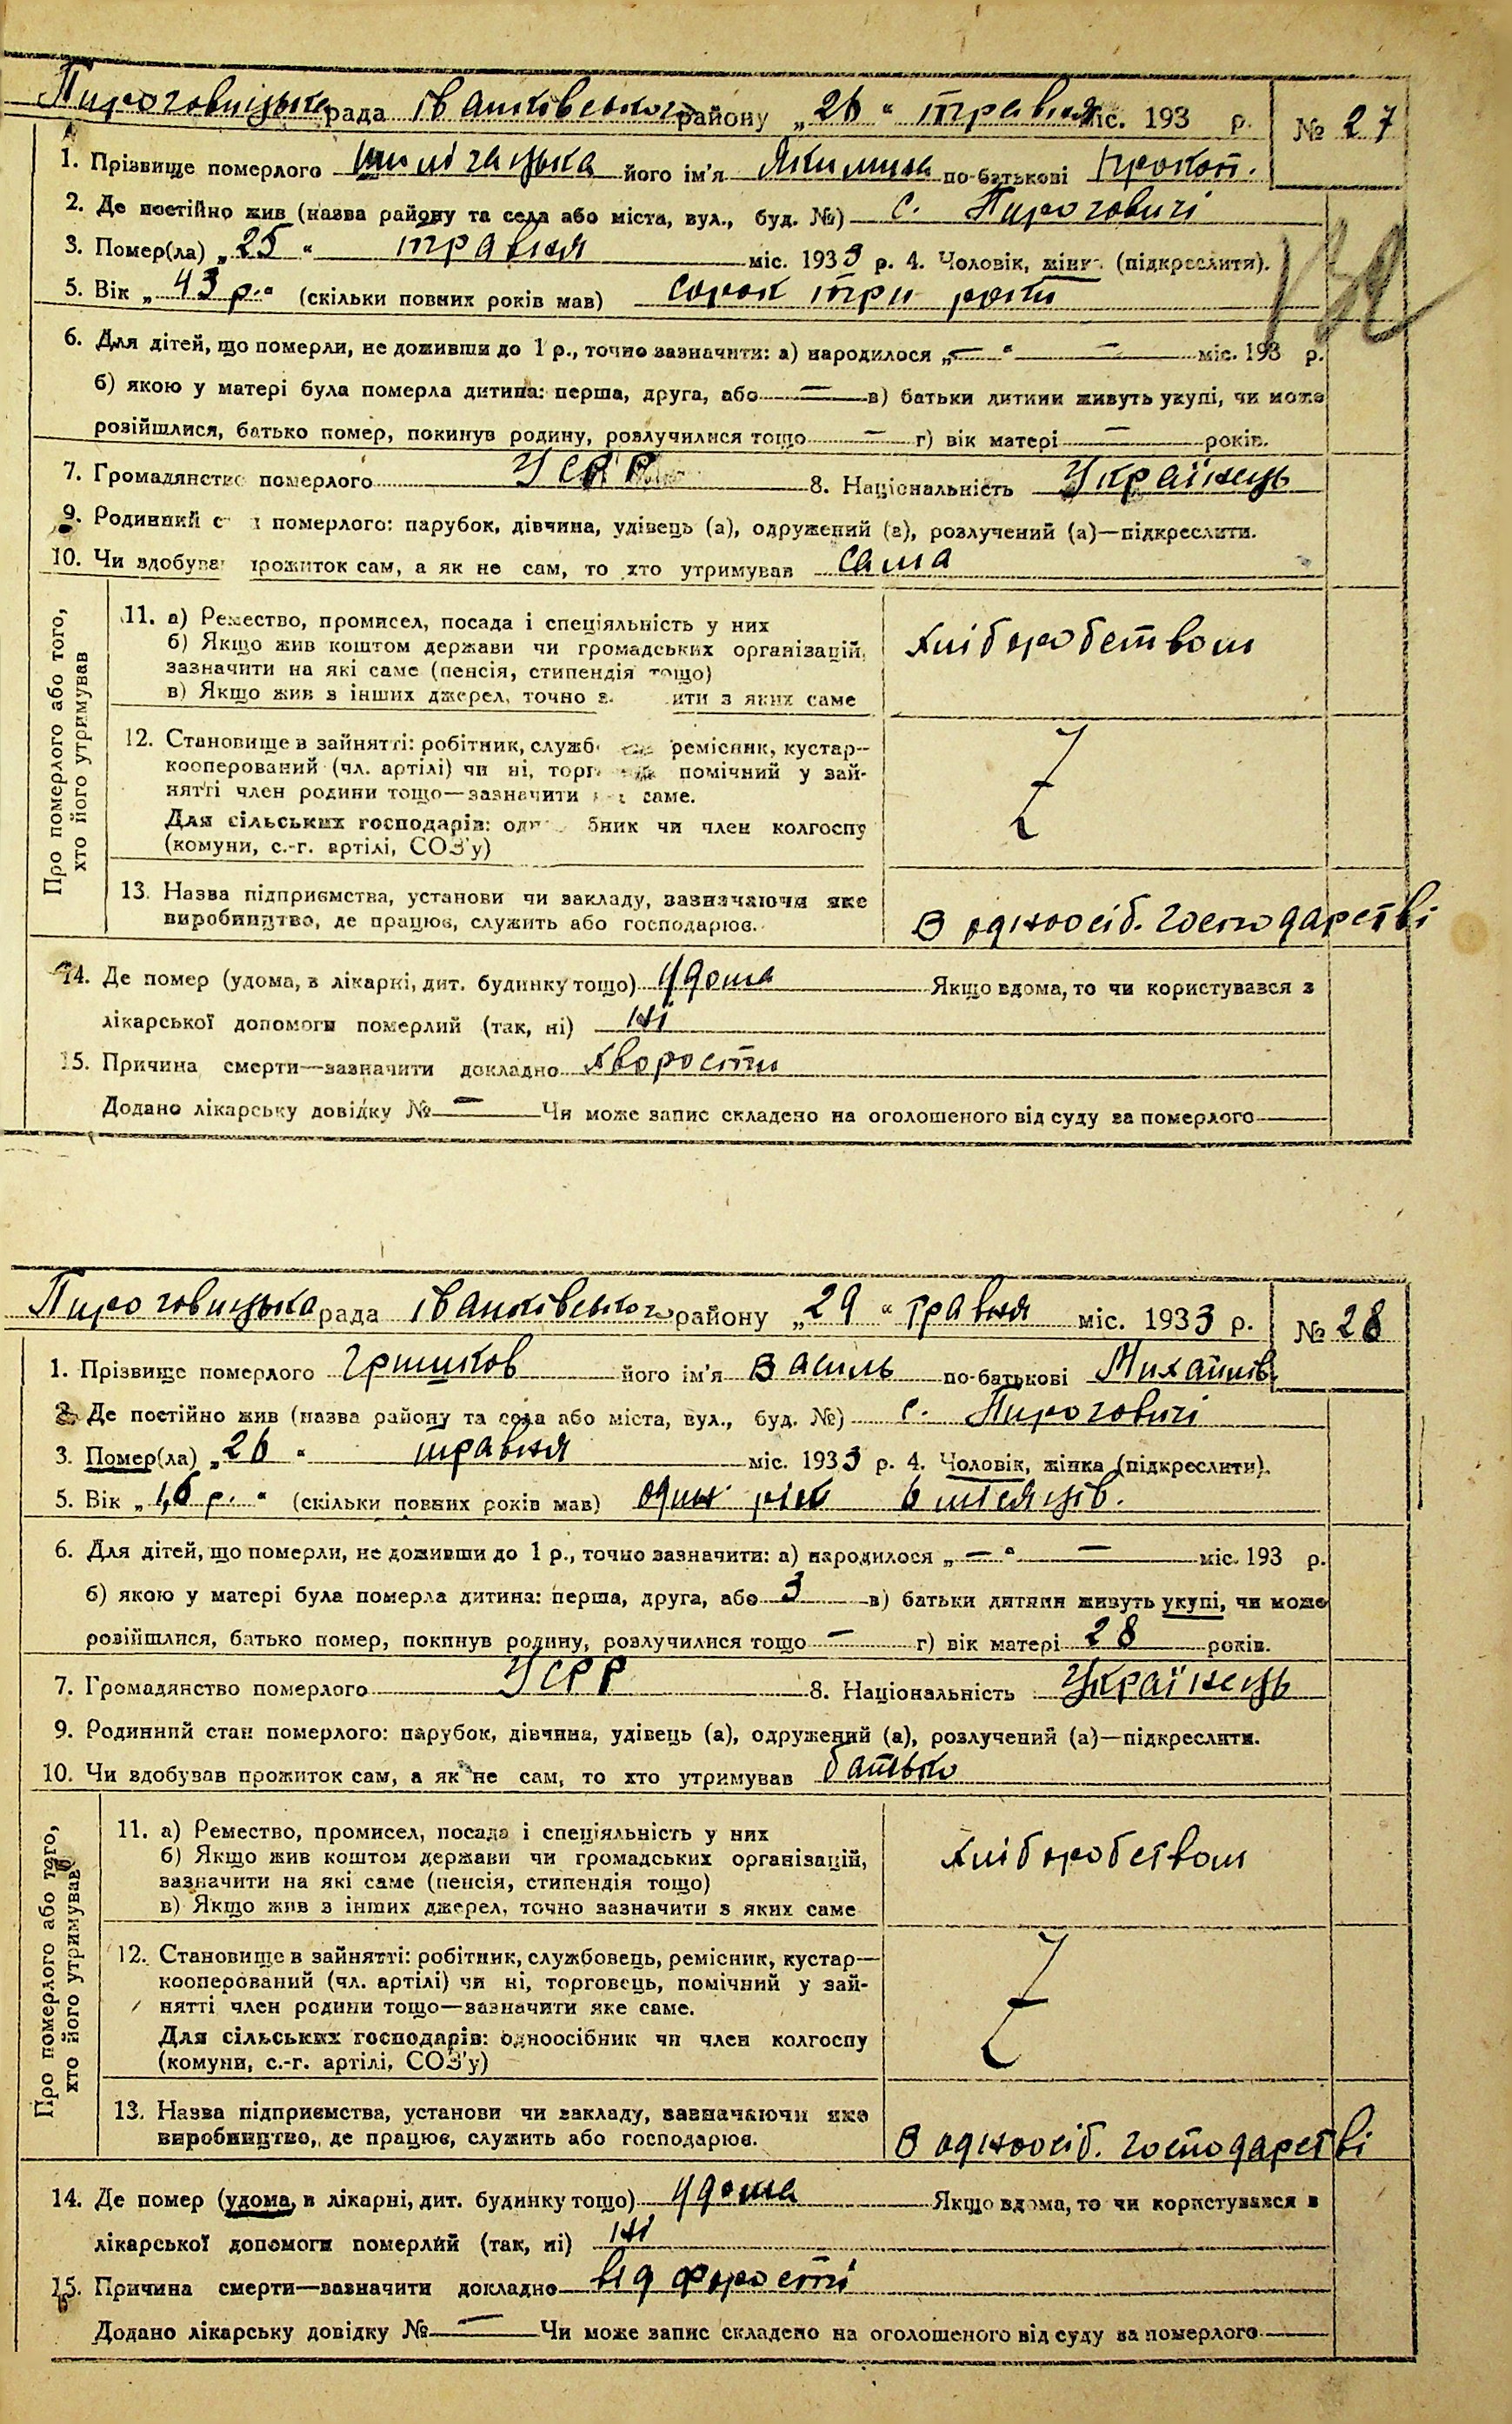 Пироговицька рада Іванківського району „26“ травня міс. 193 р. № 27
1. Прізвище померлого його ім'я Якимина по-батькові Прокоп.
2. Де постійно жив (назва району та села або міста, вул., буд. №) с. Пироговичі
3. Помер(ла) „25“ травня міс. 1933 р. 4. Чоловік, жінка (підкреслити).
5. Вік „43 р.“ (скільки повних років мав) сорок три роки
6. Для дітей, що померли, не доживши до 1 р., точно зазначити: а) народилося „—“ — міс. 193 р.
б) якою у матері була померла дитина: перша, друга, або — в) батьки дитини живуть укупі, чи може
розійшлися, батько помер, покинув родину, розлучилися тощо — г) вік матері — років.
7. Громадянство померлого УСРР 8. Національність Українець
9. Родинний стан померлого: парубок, дівчина, удівець (а), одружений (а), розлучений (а)—підкреслити.
10. Чи здобував прожиток сам, а як не сам, то хто утримував сама
Про померлого або того, хто його утримував
11. а) Ремество, промисел, посада і спеціяльність у них
б) Якщо жив коштом держави чи громадських організацій,
зазначити на які саме (пенсія, стипендія тощо)
в) Якщо жив з інших джерел, точно зазначити з яких саме
хліборобством
12. Становище в зайнятті: робітник, службовець, ремісник, кустар—
кооперований (чл. артілі) чи ні, торговець, помічний у зай-
нятті член родини тощо—зазначити яке саме.
Для сільських господарів: одноосібник чи член колгоспу
(комуни, с.-г. артілі, СОЗ'у)
13. Назва підприємства, установи чи закладу, зазначаючи яке
виробництво, де працює, служить або господарює.
В одноосіб. господарстві
14. Де помер (удома, в лікарні, дит. будинку тощо) удома Якщо вдома, то чи користувався з
лікарської допомоги померлий (так, ні) ні
15. Причина смерти—зазначити докладно хворости
Додано лікарську довідку № — Чи може запис складено на оголошеного від суду за померлого
Пироговицька рада Іванківського району „29“ травня міс. 1933 р. № 28
1. Прізвище померлого його ім'я Василь по-батькові Михайлів.
2. Де постійно жив (назва району та села або міста, вул., буд. №) с. Пироговичі
3. Помер(ла) „26“ травня міс. 1933 р. 4. Чоловік, жінка (підкреслити).
5. Вік „1,6 р.“ (скільки повних років мав) один рік 6 місяців.
6. Для дітей, що померли, не доживши до 1 р., точно зазначити: а) народилося „—“ — міс. 193 р.
б) якою у матері була померла дитина: перша, друга, або 3 в) батьки дитини живуть укупі, чи може
розійшлися, батько помер, покинув родину, розлучилися тощо — г) вік матері 28 років.
7. Громадянство померлого УСРР 8. Національність Українець
9. Родинний стан померлого: парубок, дівчина, удівець (а), одружений (а), розлучений (а)—підкреслити.
10. Чи здобував прожиток сам, а як не сам, то хто утримував батько
Про померлого або того, хто його утримував
11. а) Ремество, промисел, посада і спеціяльність у них
б) Якщо жив коштом держави чи громадських організацій,
зазначити на які саме (пенсія, стипендія тощо)
в) Якщо жив з інших джерел, точно зазначити з яких саме
хліборобством
12. Становище в зайнятті: робітник, службовець, ремісник, кустар—
кооперований (чл. артілі) чи ні, торговець, помічний у зай-
нятті член родини тощо—зазначити яке саме.
Для сільських господарів: одноосібник чи член колгоспу
(комуни, с.-г. артілі, СОЗ'у)
13. Назва підприємства, установи чи закладу, зазначаючи яке
виробництво, де працює, служить або господарює.
В одноосіб. господарстві
14. Де помер (удома, в лікарні, дит. будинку тощо) удома Якщо вдома, то чи користувався з
лікарської допомоги померлий (так, ні) ні
15. Причина смерти—зазначити докладно від форості
Додано лікарську довідку № — Чи може запис складено на оголошеного від суду за померлого